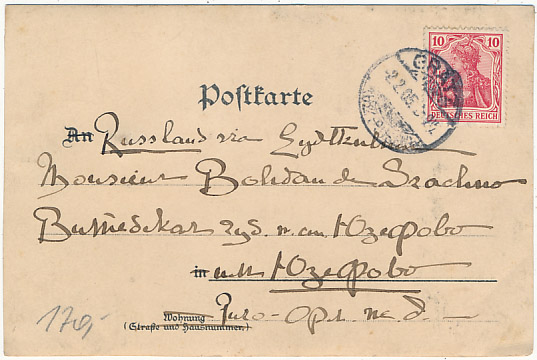 10 10
DEUTSCHES REICH
2.2.05
Postkarte
An Russland via Eydtkuhnen
Monsieur Bohdan de Szachno
Витебская губ. п. ст. Юзефово
in им. Юзефово
Wohnung Риго-Орл. ж. д.
(Straße und Hausnummer.)
170,-